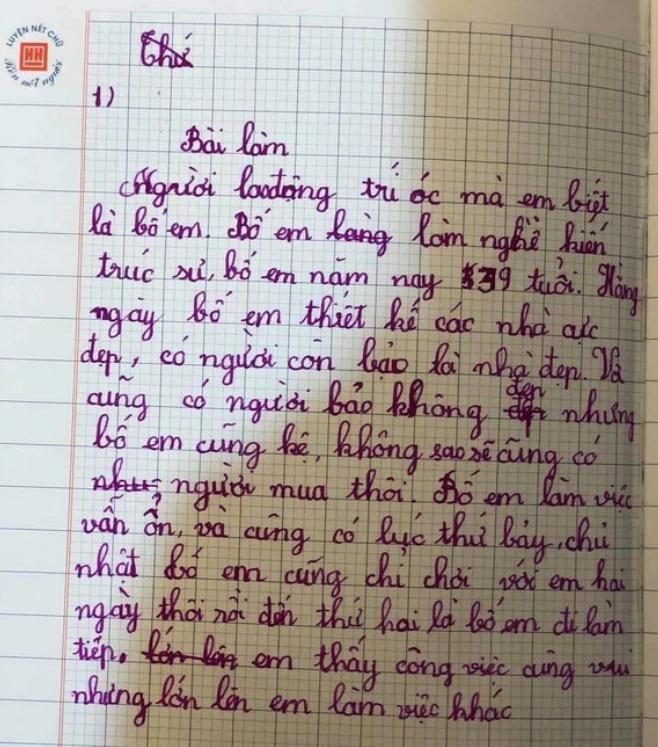 LUYỆN NÉT CHỮ
HH
Rèn nết người
Thứ
1)
Bài làm
Người laođộng trí óc mà em biết
là bố em. Bố em làng làm nghề kiến
trúc sư, bố em năm nay 39 tuổi. Hằng
ngày bố em thiết kế các nhà cực
đẹp, có người còn bảo là nhà đẹp. Và
cũng có người bảo không đẹp nhưng
bố em cũng kệ, không sao sẽ cũng có
người mua thôi. Bố em làm việc
vẫn ổn, và cũng có lực thứ bảy, chủ
nhật bố em cũng chỉ chơi với em hai
ngày thôi rồi đến thứ hai là bố em đi làm
tiếp. lớn lên em thấy công việc cũng vui
nhưng lớn lên em làm việc khác